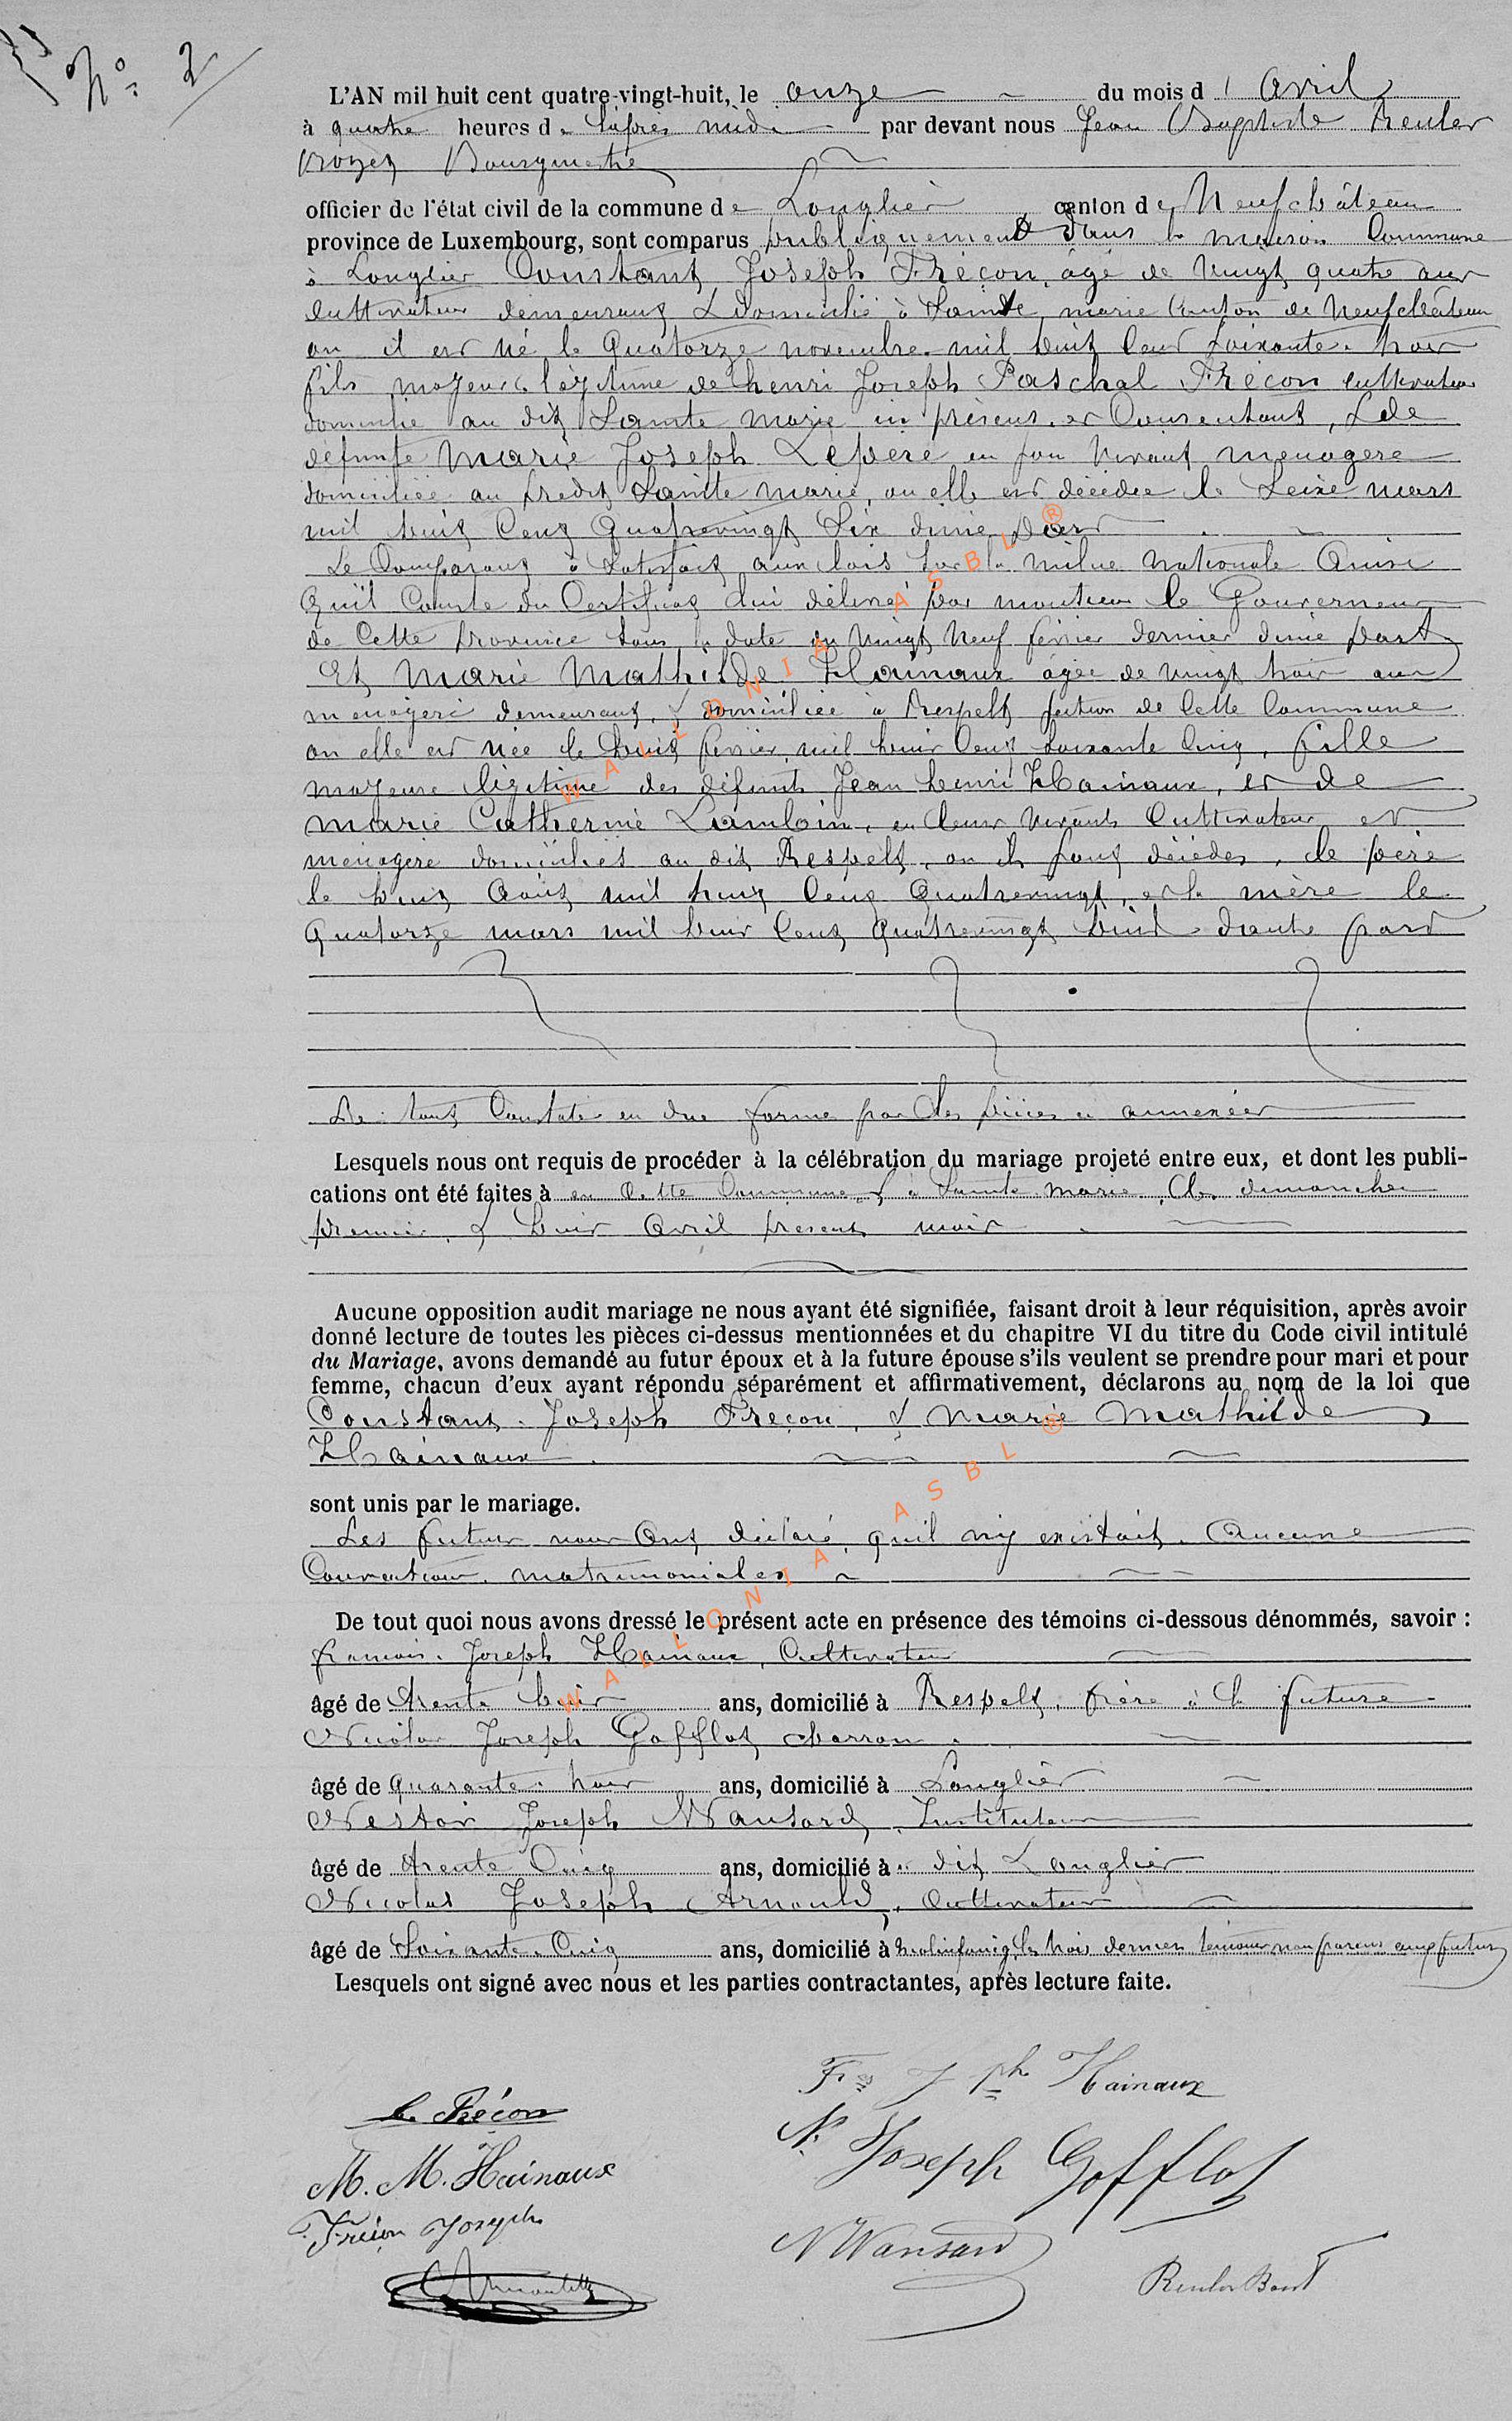 No 2
L'AN mil huit cent quatre-vingt-huit, le onze du mois d'Avril
à quatre heures de l'après midi par devant nous Jean Baptiste Reuler
Bourgmestre
officier de l'état civil de la commune de Longlier canton de Neufchâteau
province de Luxembourg, sont comparus publiquement dans la maison Commune
à Longlier Constant Joseph Frécon, âgé de vingt quatre ans
Cultivateur demeurant & domicilié à Sainte marie Canton de Neufchâteau
ou il est né le Quatorze novembre mil huit Cent soixante trois
fils majeur légitime de henri Joseph Paschal Frécon cultivateur
domicilié au dit Sainte Marie ici présent et Consentant, & de
défunte Marie Joseph Lépère en son vivant ménagère
domiciliée au predit Sainte Marie, ou elle est décédée le Seize mars
mil huit Cent Quatrevingt Six d'une part
Le Comparant a Satisfait aux lois sur la milice nationale Ainsi
Qu'il Conste du Certificat lui délivré par monsieur le Gouverneur
de Cette province sous la date du vingt Neuf février dernier d'une part
Et Marie Mathilde Hainaux âgée de vingt trois ans
ménagère demeurant & domiciliée à Respelt section de Cette Commune
ou elle est née le huit février mil huit Cent Soixante Cinq, fille
majeure légitime des défunts Jean henri Hainaux, et de
Marie Catherine Lambin, en leur vivants Cultivateur et
ménagère domiciliés au dit Respelt, ou ils sont décédés, le père
le huit Août mil huit Cent Quatrevingt, et la mère le
Quatorze mars mil huit Cent Quatrevingt huit d'autre part
Le tout Constaté en due forme par les pièces ci annexées
Lesquels nous ont requis de procéder à la célébration du mariage projeté entre eux, et dont les publi-
cations ont été faites à en Cette Commune & à Sainte Marie, les dimanches
premier & huit Avril présent mois
Aucune opposition audit mariage ne nous ayant été signifiée, faisant droit à leur réquisition, après avoir
donné lecture de toutes les pièces ci-dessus mentionnées et du chapitre VI du titre du Code civil intitulé
du Mariage, avons demandé au futur époux et à la future épouse s'ils veulent se prendre pour mari et pour
femme, chacun d'eux ayant répondu séparément et affirmativement, déclarons au nom de la loi que
Constant Joseph Frécon, & Marie Mathilde
Hainaux
sont unis par le mariage.
Les futurs nous Ont déclaré qu'il n'y existait Aucune
Convention matrimoniales
De tout quoi nous avons dressé le présent acte en présence des témoins ci-dessous dénommés, savoir :
françois Joseph Hainaux, Cultivateur
âgé de trente huit ans, domicilié à Respelt, frère à la future
Nicolas Joseph Gofflot charron
âgé de quarante trois ans, domicilié à Longlier
Nestor Joseph Wansard, Instituteur
âgé de trente Cinq ans, domicilié à dit Longlier
Nicolas Joseph Arnould, Cultivateur
âgé de Soixante Cinq ans, domicilié à Molinfaing, les trois derniers témoins non parens aux futurs
Lesquels ont signé avec nous et les parties contractantes, après lecture faite.
Fs Jph Hainaux
C. Frécon
N. Joseph Gofflot
M. M. Hainaux
Frécon Joseph
N Wansard
Arnould
Reuler Bourt
WALLONIA ASBL ®
WALLONIA ASBL ®